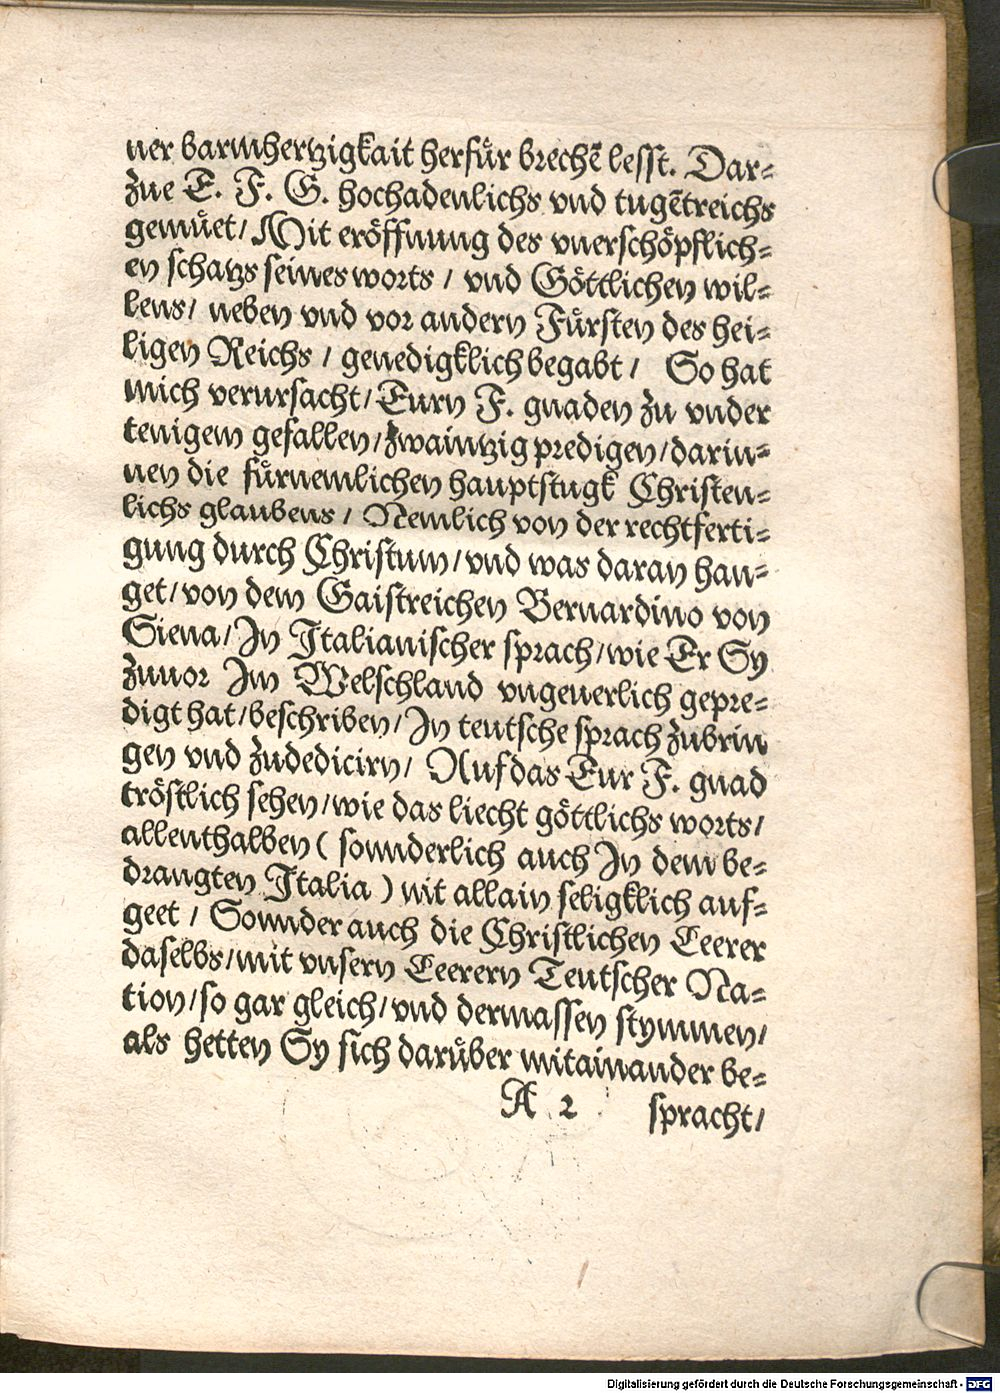 ner barmhertzigkait herfür brechē lesst. Dar⸗
zue E. F. G. hochadenlichs vnd tugētreichs
gemüet/ Mit eröffnung des vnerschöpflich⸗
en schatzs seines worts / vnd Göttlichen wil⸗
lens/ neben vnd vor andern Fürsten des hei⸗
ligen Reichs / genedigklich begabt / So hat
mich verursacht/ Eurn F. gnaden zu vnder
tenigem gefallen/ zwaintzig predigen/ darin⸗
nen die fürnemlichen hauptstugk Christen⸗
lichs glaubens / Nemlich von der rechtferti⸗
gung durch Christum/ vnd was daran han⸗
get/ von dem Gaistreichen Bernardino von
Siena/ In Italianischer sprach/ wie Er Sy
zuuor Im Welschland vngeuerlich gepre⸗
digt hat/ beschriben/ In teutsche sprach zubrin
gen vnd zudedicirn/ Auf das Eur F. gnad
tröstlich sehen/ wie das liecht göttlichs worts/
allenthalben ( sonnderlich auch In dem be⸗
drangten Italia ) nit allain seligklich auf⸗
geet / Sonnder auch die Christlichen Leerer
daselbs/ mit vnsern Leerern Teutscher Na⸗
tion/ so gar gleich/ vnd dermassen stymmen/
als hetten Sy sich darüber mitainander be⸗
A 2 spracht/
Digitalisierung gefördert durch die Deutsche Forschungsgemeinschaft - DFG